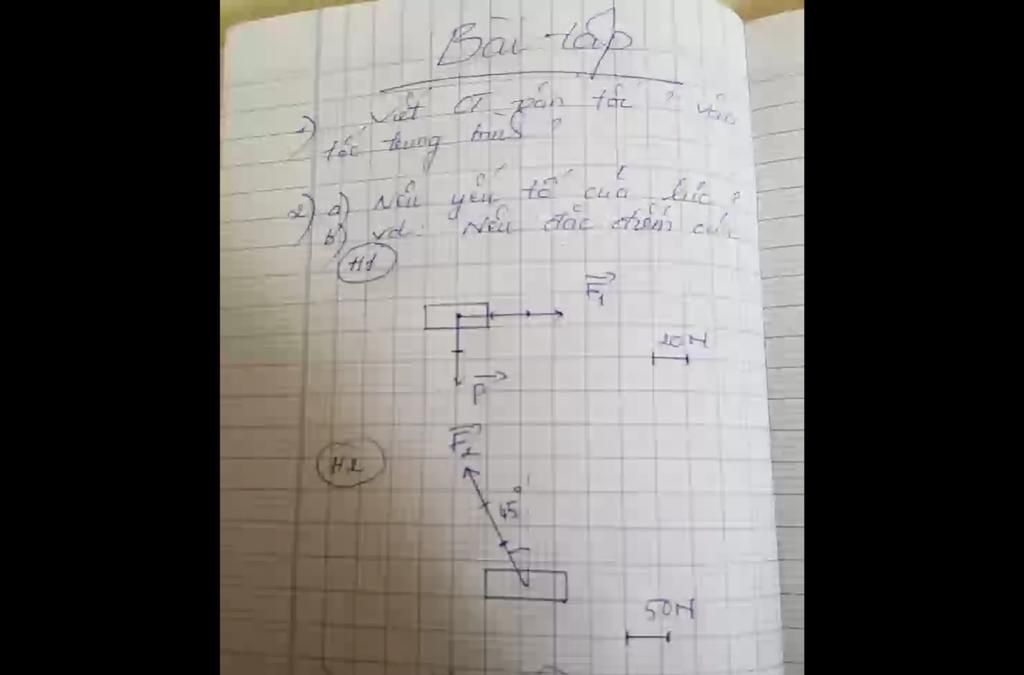 Bài tập
1) Viết CT vận tốc ? vận
tốc trung bình ?
2) a) Nêu yếu tố của lực ?
b) vd: Nêu đặc điểm của
H1
F₁
20N
P
F₂
H2
45°
50N